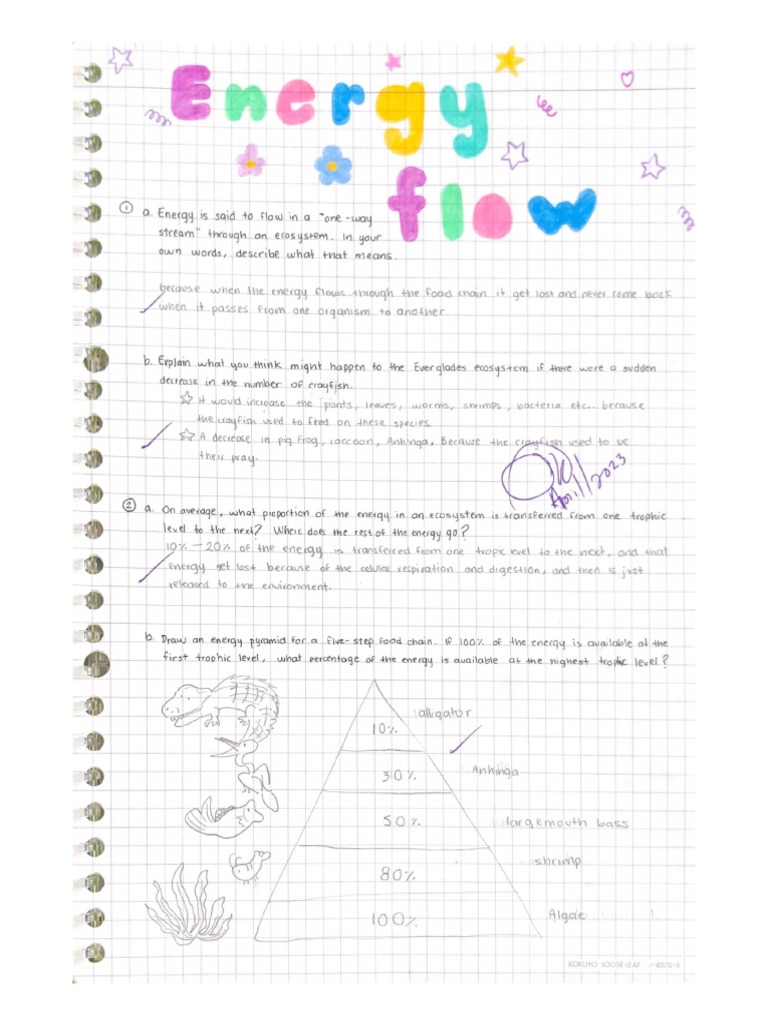 Energy
flow
① a. Energy is said to flow in a "one-way
stream" through an ecosystem. In your
own words, describe what that means.
because when the energy flows through the food chain it get lost and never come back
when it passes from one organism to another.
b. Explain what you think might happen to the Everglades ecosystem if there were a sudden
decrease in the number of crayfish.
☆ It would increase the plants, leaves, worms, shrimps, bacteria etc.. because
the crayfish used to feed on these species
☆ A decrease in pig frog, raccoon, Anhinga, Because the crayfish used to be
their pray.
April/2023
② a. On average, what proportion of the energy in an ecosystem is transferred from one trophic
level to the next? Where does the rest of the energy go?
10% - 20% of the energy is transferred from one tropic level to the next, and that
energy get lost because of the celular respiration and digestion, and then is just
released to the environment.
b. Draw an energy pyramid for a five-step food chain. If 100% of the energy is available at the
first trophic level, what percentage of the energy is available at the highest trophic level?
10% alligator
30% Anhinga
50% largemouth bass
80% shrimp
100% Algae
KOKUYO LOOSE-LEAF